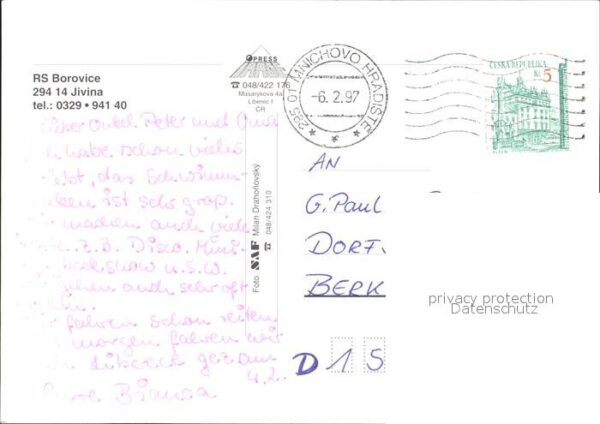 PRESS
☎ 048/422 176
Masarykova 4a
Liberec I
ČR
RS Borovice
294 14 Jivina
tel.: 0329 • 941 40
295 01 MNICHOVO HRADIŠTĚ
-6.2.97
ČESKÁ REPUBLIKA
Kč 5
Foto SAF Milan Drahoňovský
☎ 048/424 310
Onkel Peter und Oma
habe schon vieles
erlebt, das Schwimm-
becken ist sehr groß.
machen auch viele
z.B. Disco, Mini-
show u.s.w.
gehen auch sehr oft
fahren schon reiten
morgen fahren wir
4.2.
Bianca
AN
G. Paul
DORF.
BERK
D 1 5
privacy protection
Datenschutz